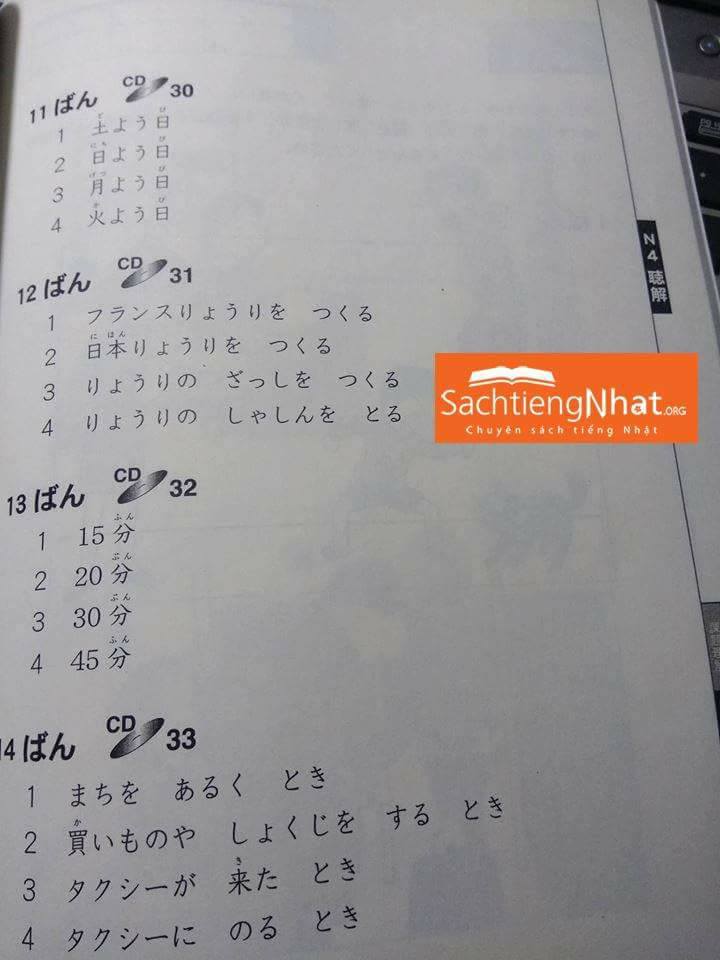 11 ばん CD 30
1 土よう日
2 日よう日
3 月よう日
4 火よう日
12 ばん CD 31
1 フランスりょうりを つくる
2 日本りょうりを つくる
3 りょうりの ざっしを つくる
4 りょうりの しゃしんを とる
13 ばん CD 32
1 15分
2 20分
3 30分
4 45分
14 ばん CD 33
1 まちを あるく とき
2 買いものや しょくじを する とき
3 タクシーが 来た とき
4 タクシーに のる とき
N4 聴解
SachtiengNhat.ORG
Chuyên sách tiếng Nhật